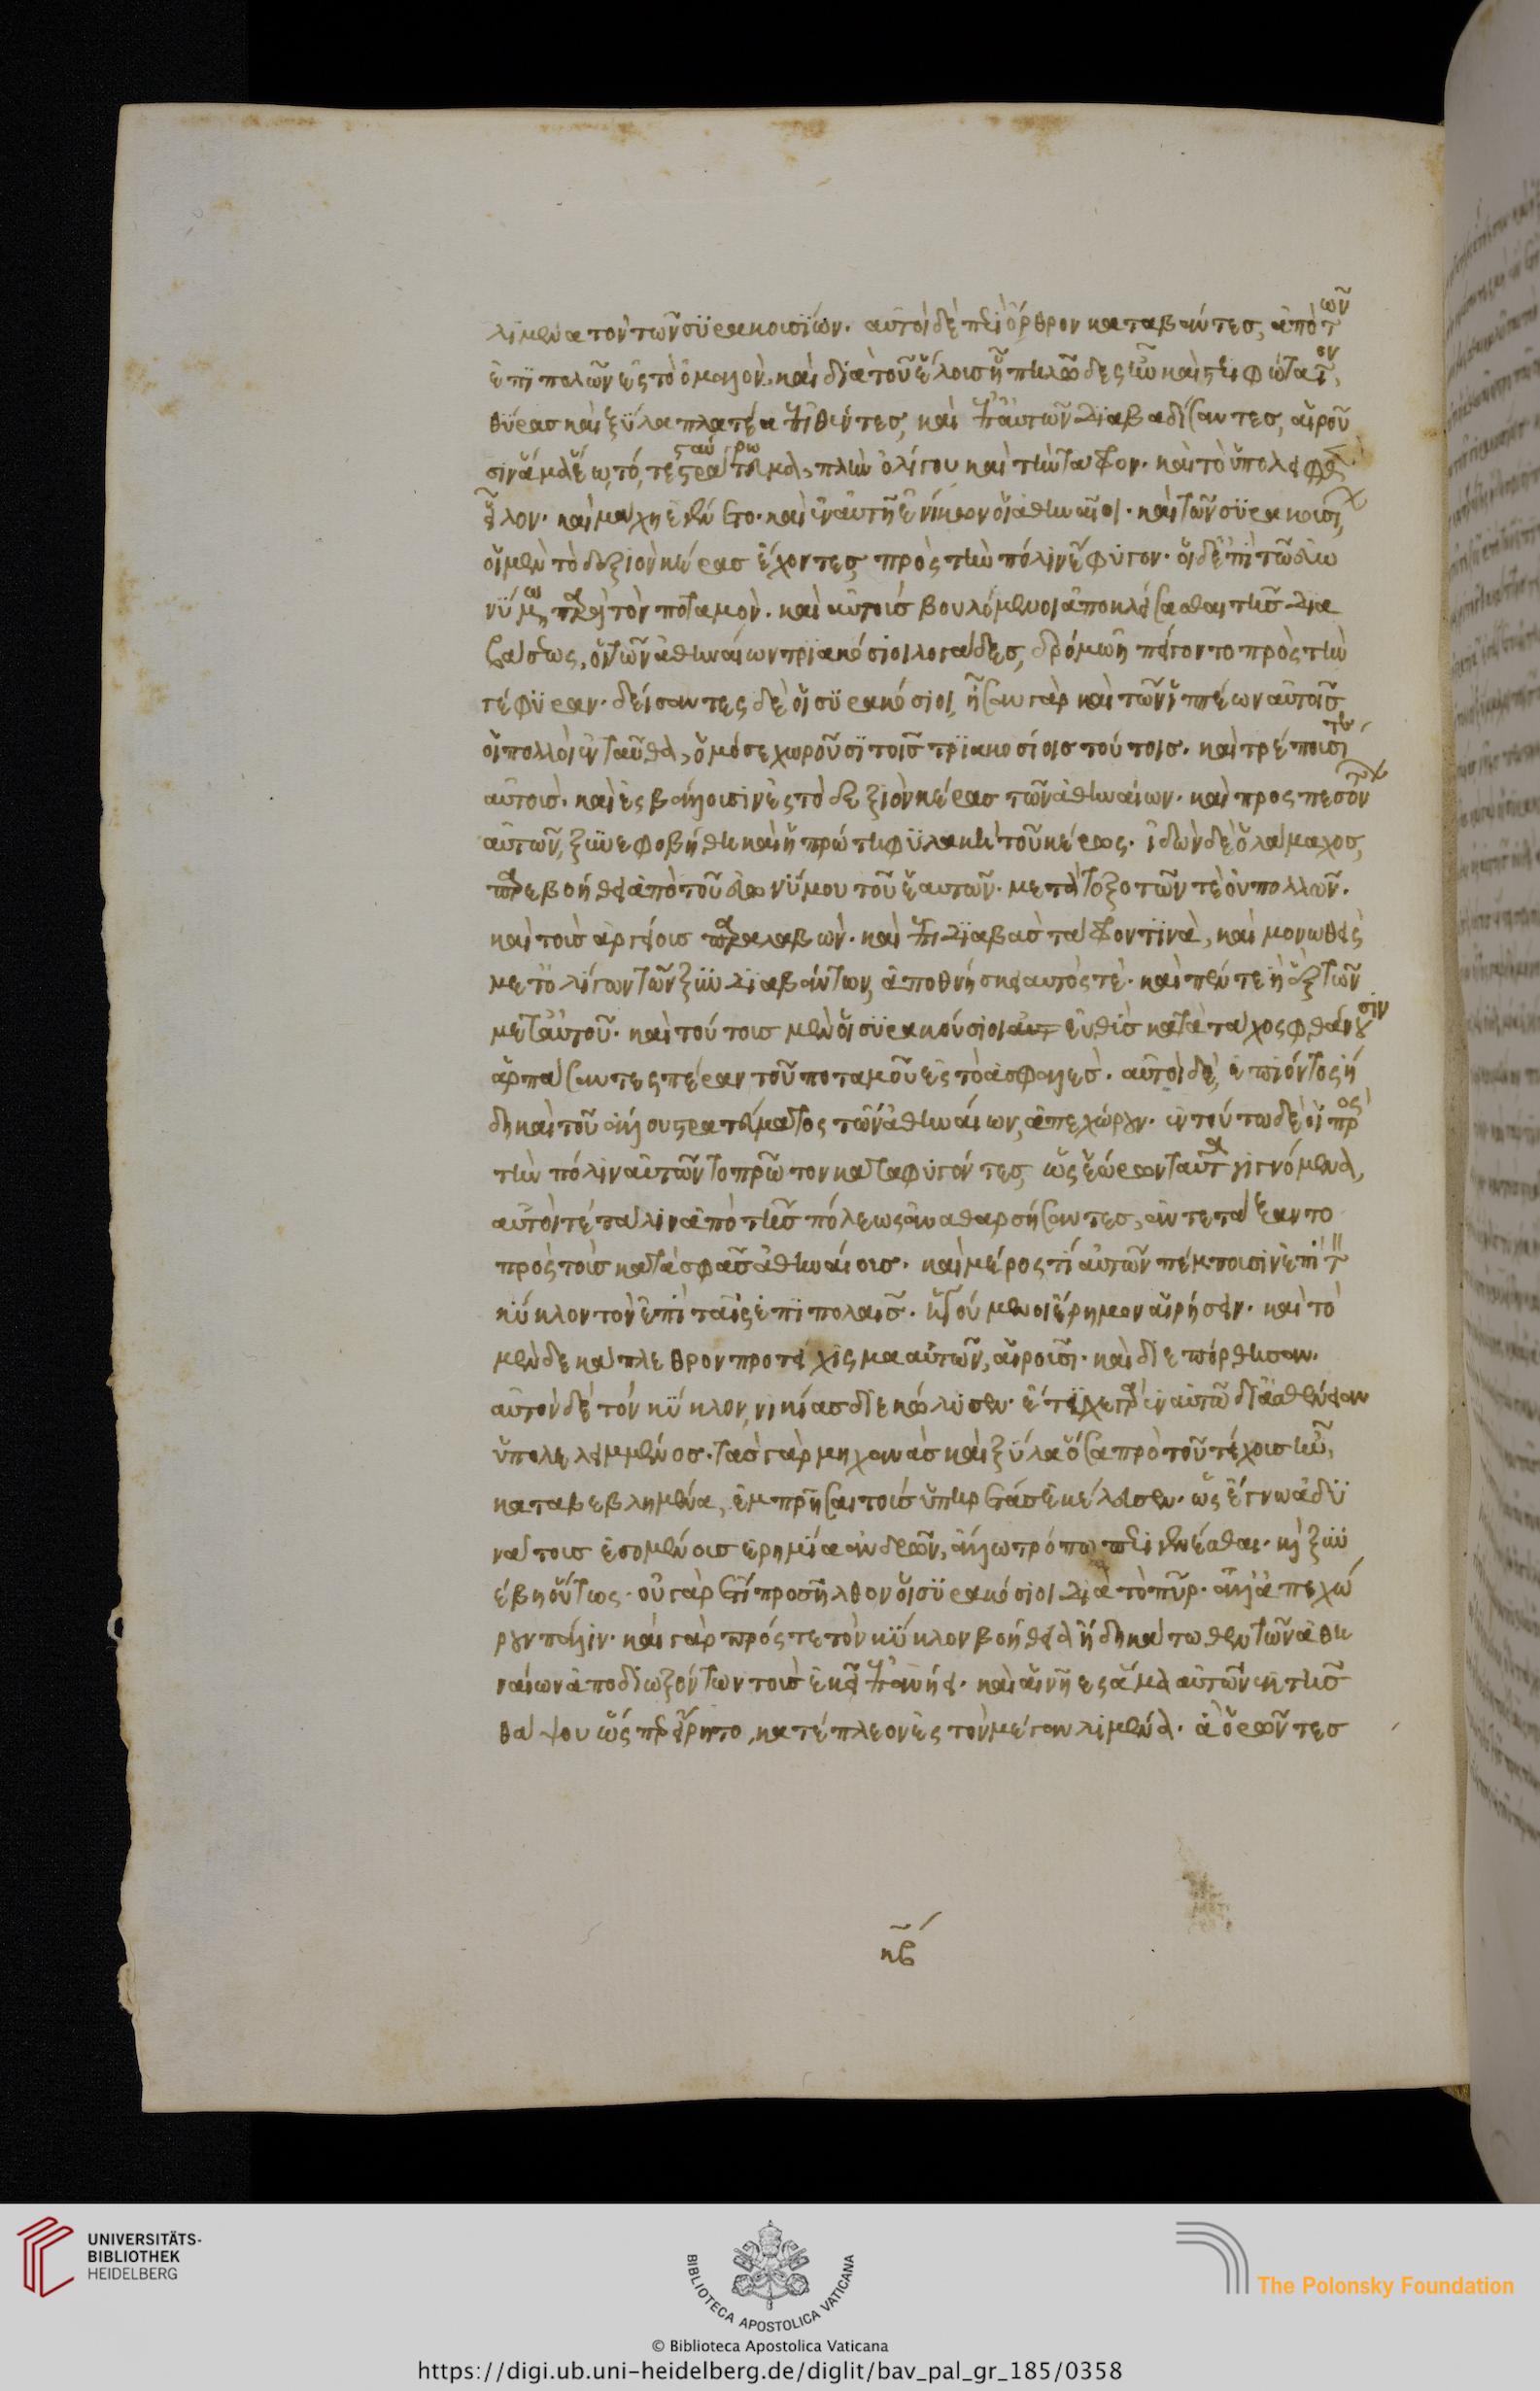 λιμένα τὸν τῶν συρακουσίων. αὐτοὶ δὲ περὶ ὄρθρον καταβάντες, ἀπὸ τῶν
ἐπιπολῶν ἐς τὸ ὁμαλὸν. καὶ διὰ τοῦ ἕλους ἧ πηλῶδες ἦν καὶ στεριφώτατον,
θύρας καὶ ξύλα πλατέα ἐπιθέντες, καὶ ἐπ' αὐτῶν διαβαδίσαντες, αἱροῦ
σιν ἅμα ἕω, τό, τε στράτευμα, σταυρω πλὴν ὀλίγου καὶ τὴν τάφρον. καὶ τὸ ὑπολειφθὲν
εἷλον. καὶ μάχη ἐγένετο. καὶ ἐν αὐτῆ ἐνίκων οἱ ἀθηναῖοι. καὶ τῶν συρακουσί,
οἱ μὲν τὸ δεξιὸν κέρας ἔχοντες πρὸς τὴν πόλιν ἔφυγον. οἱ δ' ἐπὶ τῶ εὐω
νύμω παρὰ τὸν ποταμὸν. καὶ αὐτοὺς βουλόμενοι ἀποκλείσασθαι τῆς δια
βάσεως, οἱ τῶν ἀθηναίων τριακόσιοι λογάδες, δρόμω ἠπείγοντο πρὸς τὴν
γέφυραν. δείσαντες δὲ οἱ συρακόσιοι, ἦσαν γὰρ καὶ τῶν ἱππέων αὐτοῖς
οἱ πολλοὶ ἐνταῦθα, ὁμόσε χωροῦσι τοῖς τριακοσίοις τούτοις. καὶ τρέπουσί τε
αὐτοὺς. καὶ ἐσβάλλουσιν ἐς τὸ δεξιὸν κέρας τῶν ἀθηναίων. καὶ προσπεσόντων
αὐτῶν, ξυνεφοβήθη καὶ ἡ πρώτη φυλακὴ τοῦ κέρως. ἰδὼν δὲ ὁ λάμαχος,
παρεβοήθει ἀπὸ τοῦ εὐωνύμου τοῦ ἑαυτῶν. μετὰ τοξοτῶν τὲ οὐ πολλῶν.
καὶ τοὺς ἀργείους παραλαβὼν. καὶ ἐπιδιαβὰς τάφρον τινὰ, καὶ μονωθεὶς
μετ' ὀλίγων τῶν ξυνδιαβάντων, ἀποθνήσκει αὐτός τὲ. καὶ πέντε ἢ ἓξ τῶν
μετ' αὐτοῦ. καὶ τούτους μὲν οἱ συρακούσιοι εὐθὺς κατὰ τάχος φθάνουσιν
ἁρπάσαντες πέραν τοῦ ποταμοῦ ἐς τὸ ἀσφαλὲς. αὐτοὶ δὲ, ἐπιόντος ἤ
δη καὶ τοῦ ἄλλου στρατεύματος τῶν ἀθηναίων, ἀπεχώρουν. ἐν τούτω δὲ οἱ πρὸς
τὴν πόλιν αὐτῶν τὸ πρῶτον καταφυγόντες, ὡς ἑώρων ταῦτα γιγνόμενα,
αὐτοί τέ πάλιν ἀπὸ τῆς πόλεως ἀναθαρσήσαντες, ἀντετάξαντο
πρὸς τοὺς κατὰ σφᾶς ἀθηναίους. καὶ μέρος τί αὐτῶν πέμπουσιν ἐπὶ τὸν
κύκλον τὸν ἐπὶ ταῖς ἐπιπολαῖς. ἡγούμενοι ἔρημον αἱρήσειν. καὶ τὸ
μὲν δεκάπλεθρον προτείχισμα αὐτῶν, αἱροῦσι. καὶ διεπόρθησαν.
αὐτὸν δὲ τὸν κύκλον, νικίας διεκώλυσεν. ἔτυχε γὰρ ἐν αὐτῶ δι' ἀσθένειαν
ὑπολελειμμένος. τὰς γὰρ μηχανὰς καὶ ξύλα ὅσα πρὸ τοῦ τείχους ἦν,
καταβεβλημένα, ἐμπρῆσαι τοὺς ὑπηρέτας ἐκέλευσεν. ὡς ἔγνω ἀδυ
νάτους ἐσομένους ἐρημία ἀνδρῶν, ἄλλω τρόπω περιγενέσθαι. καὶ ξυν
έβη οὕτως. οὐ γὰρ ἔτι προσῆλθον οἱ συρακόσιοι διὰ τὸ πῦρ. ἀλλὰ ἀπεχώ
ρουν πάλιν. καὶ γὰρ πρός τε τὸν κύκλον βοήθεια ἤδη κάτωθεν τῶν ἀθη
ναίων ἀποδιωξόντων τοὺς ἐκεῖ ἐπανήει. καὶ αἱ νῆες ἅμα αὐτῶν ἐκ τῆς
θάψου ὥσπερ εἴρητο, κατέπλεον ἐς τὸν μέγαν λιμένα. ἃ ὁρῶντες
κβ
UNIVERSITÄTS-
BIBLIOTHEK
HEIDELBERG
BIBLIOTECA APOSTOLICA VATICANA
The Polonsky Foundation
© Biblioteca Apostolica Vaticana
https://digi.ub.uni-heidelberg.de/diglit/bav_pal_gr_185/0358